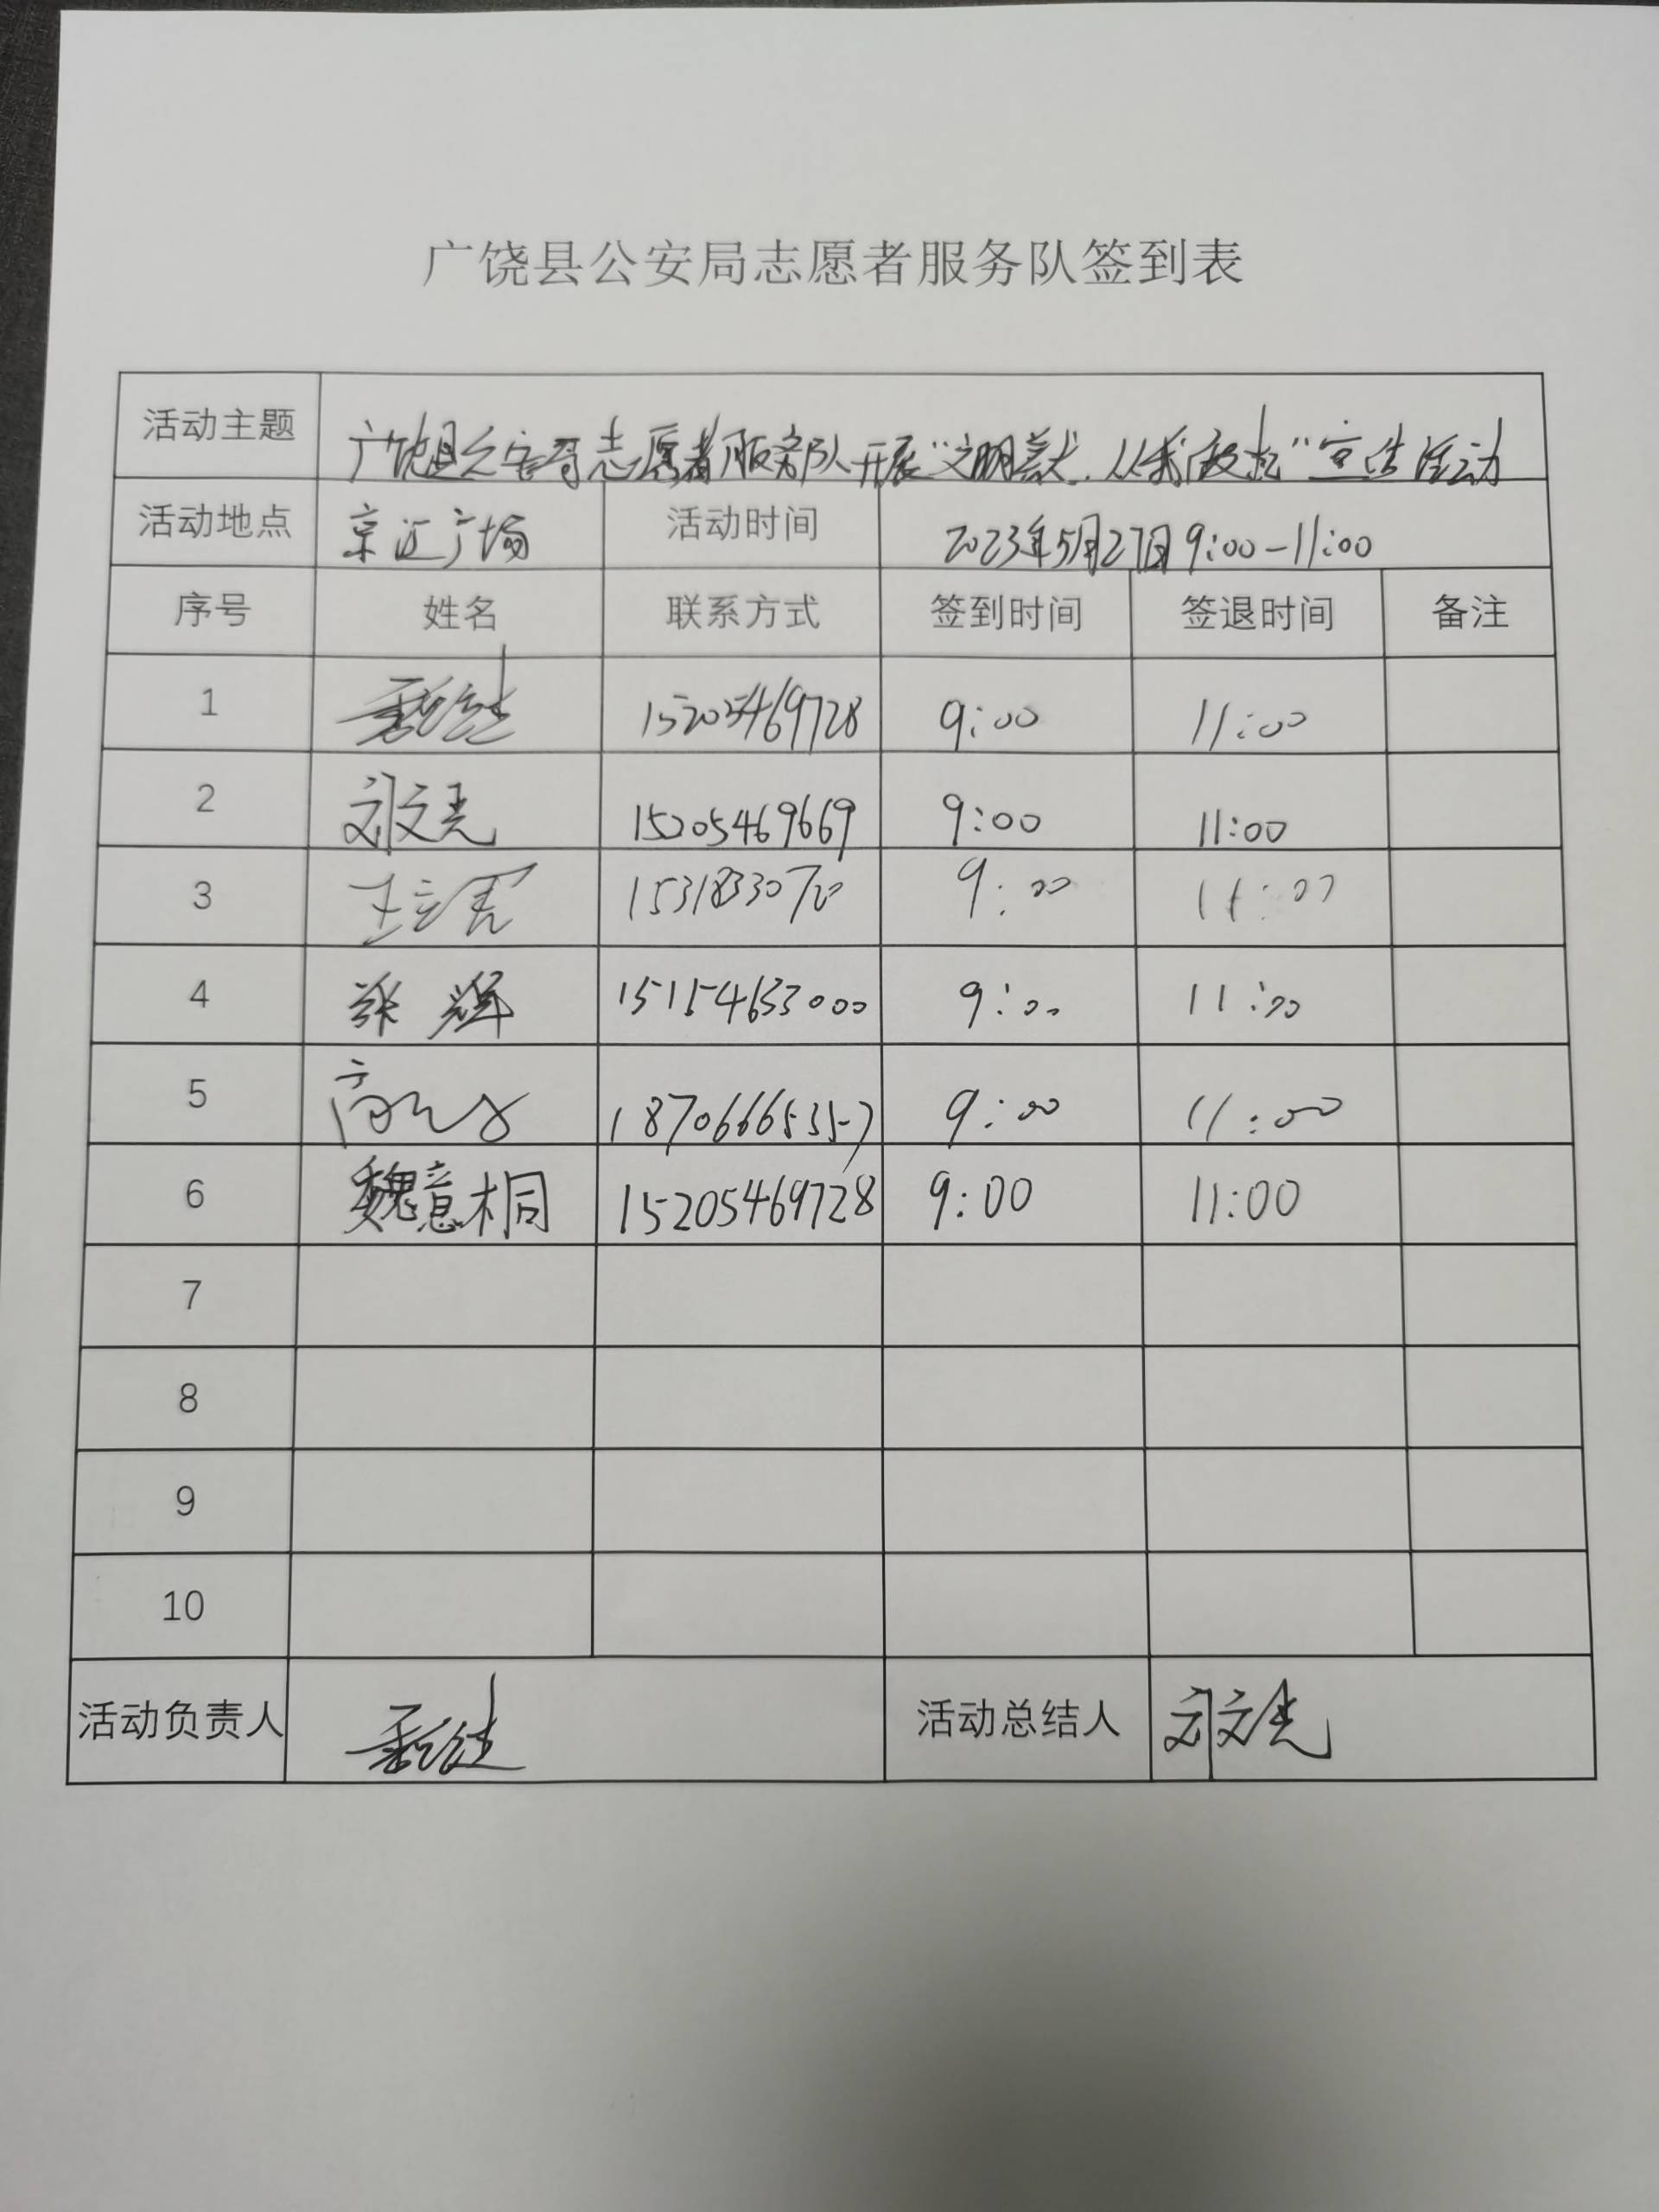 广饶县公安局志愿者服务队签到表
活动主题 广饶县公安局志愿者服务队开展“文明养犬.从我做起”宣传活动
活动地点 京汇广场 活动时间 2023年5月27日9:00-11:00
序号 姓名 联系方式 签到时间 签退时间 备注
1 15205469728 9:00 11:00
2 刘文亮 15205469669 9:00 11:00
3 9:00 11:00
4 张辉 15154633000 9:00 11:00
5 18706665357 9:00 11:00
6 魏意桐 15205469728 9:00 11:00
7
8
9
10
活动负责人 活动总结人 刘文亮